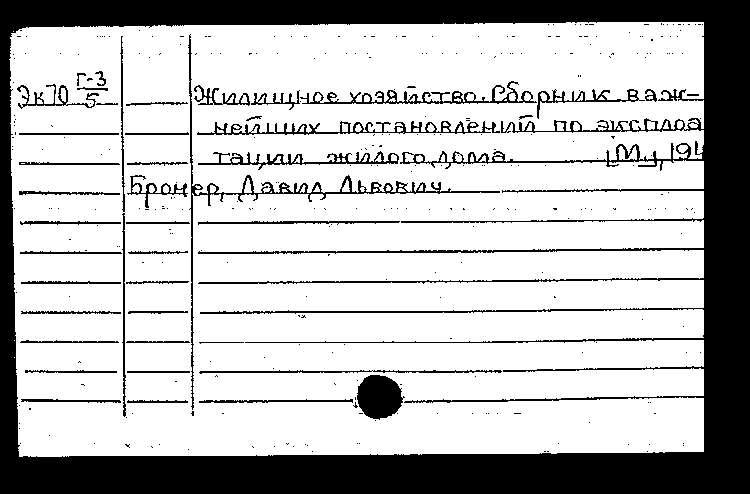 Эк70 Г-3/5 Жилищное хозяйство. Сборник важ-
нейших постановлений по эксплоа
тации жилого дома. [М.], 194
Бромер, Давид Львович.